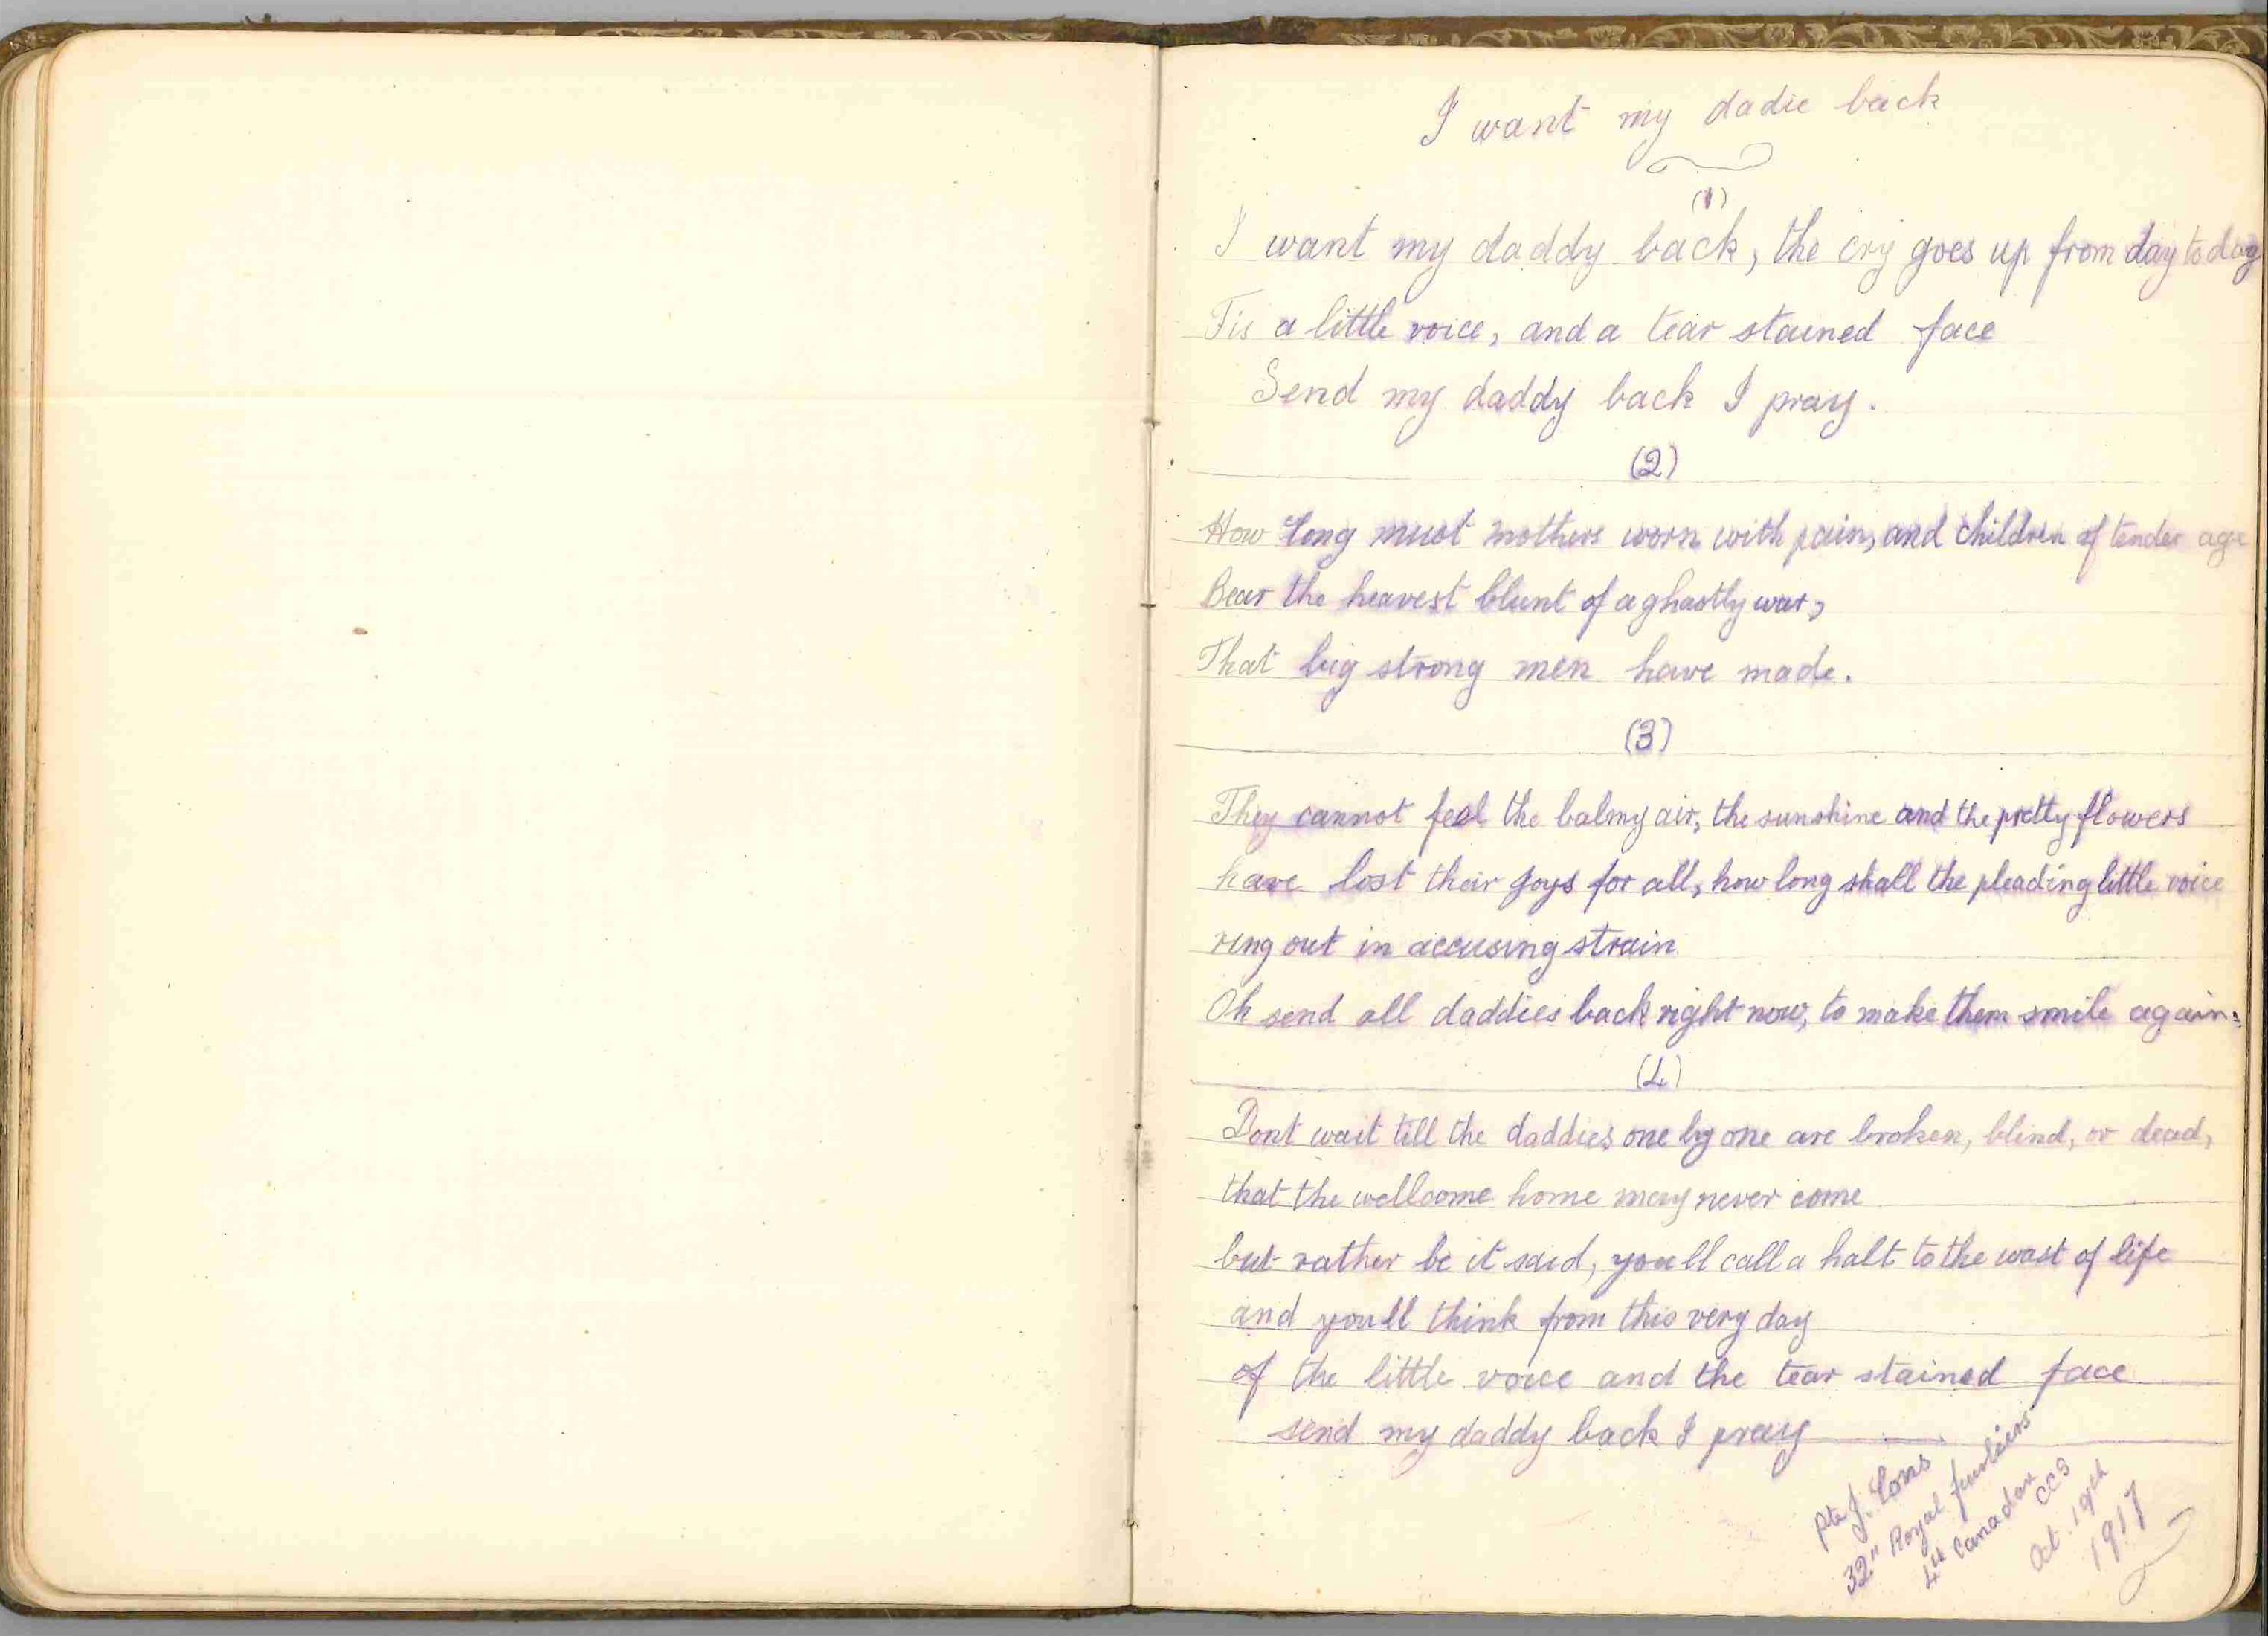 I want my dadie back
(1)
I want my daddy back, the cry goes up from day to day
Tis a little voice, and a tear stained face
Send my daddy back I pray.
(2)
How long must mothers worn with pain, and children of tender age
Bear the heavest blunt of a ghastly war,
That big strong men have made.
(3)
They cannot feel the balmy air, the sunshine and the pretty flowers
have lost their joys for all, how long shall the pleading little voice
ring out in accusing strain
Oh send all daddies back right now, to make them smile again.
(4)
Dont wait till the daddies one by one are broken, blind, or dead,
that the wellcome home may never come
but rather be it said, youll call a halt to the wast of life
and youll think from this very day
of the little voice and the tear stained face
send my daddy back I pray
Pte J.
32" Royal fusiliers
4th Canadian CCS
Oct. 19th
1917